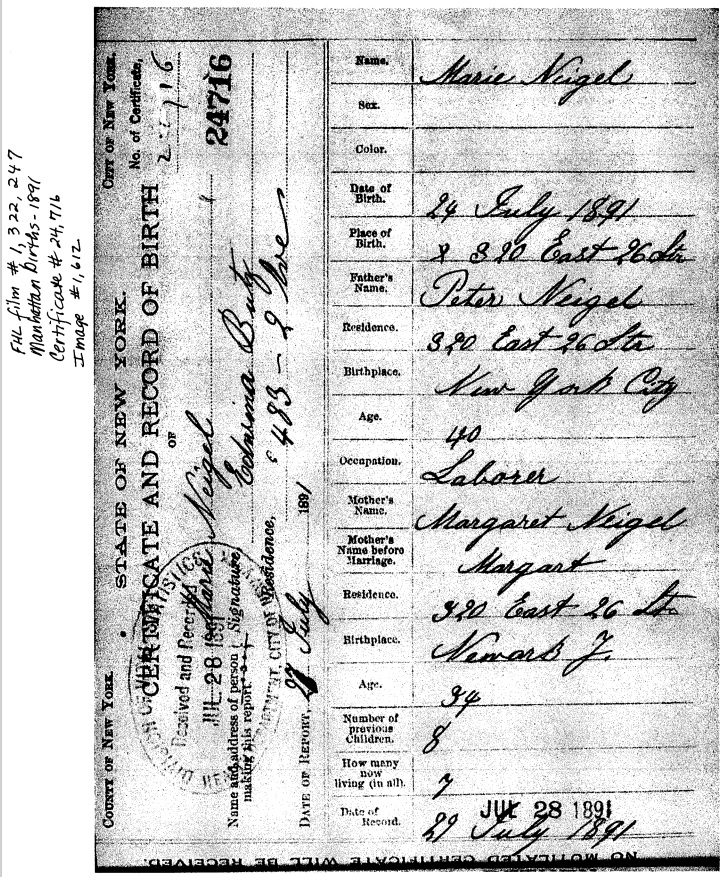 FHL film # 1,322,247
Manhattan Births-1891
Certificate # 24,716
Image # 1,612
COUNTY OF NEW YORK.
STATE OF NEW YORK.
CITY OF NEW YORK.
No. of Certificate,
24716
CERTIFICATE AND RECORD OF BIRTH
OF
Marie Neigel
Received and Recorded
JUL 28 1891
Name and address of person making this report.
Signature,
Edwina Butz
Residence,
483 - 2 Ave
DATE OF REPORT,
27 July 1891
Name. Marie Neigel
Sex.
Color.
Date of Birth. 24 July 1891
Place of Birth. 320 East 26 Str
Father's Name. Peter Neigel
Residence. 320 East 26 Str
Birthplace. New York City
Age. 40
Occupation. Laborer
Mother's Name. Margaret Neigel
Mother's Name before Marriage. Margart
Residence. 320 East 26 St.
Birthplace. Newark J.
Age. 34
Number of previous Children. 8
How many now living (in all). 7
Date of Record. 27 July 1891
JUL 28 1891
NO MUTILATED CERTIFICATE WILL BE RECEIVED.